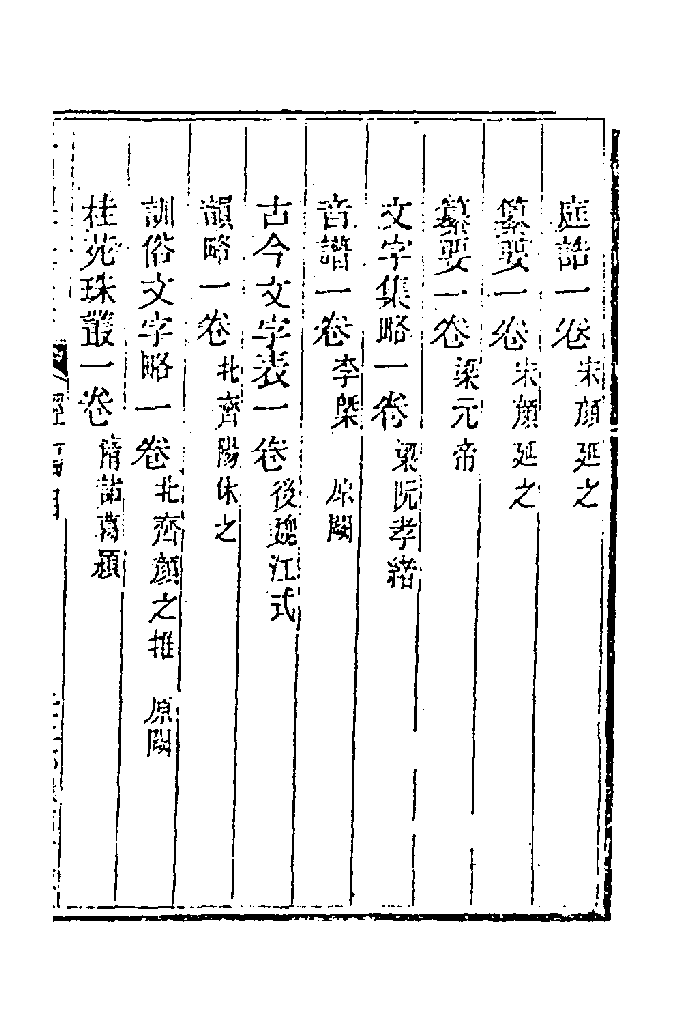 庭誥一卷 宋顔延之
纂要一卷 宋顔延之
纂要一卷 梁元帝
文字集略一卷 梁阮孝緒
音譜一卷 李槩 原闕
古今文字表一卷 後魏江式
韻略一卷 北齊陽休之
訓俗文字略一卷 北齊顔之推 原闕
桂苑珠叢一卷 隋諸葛潁